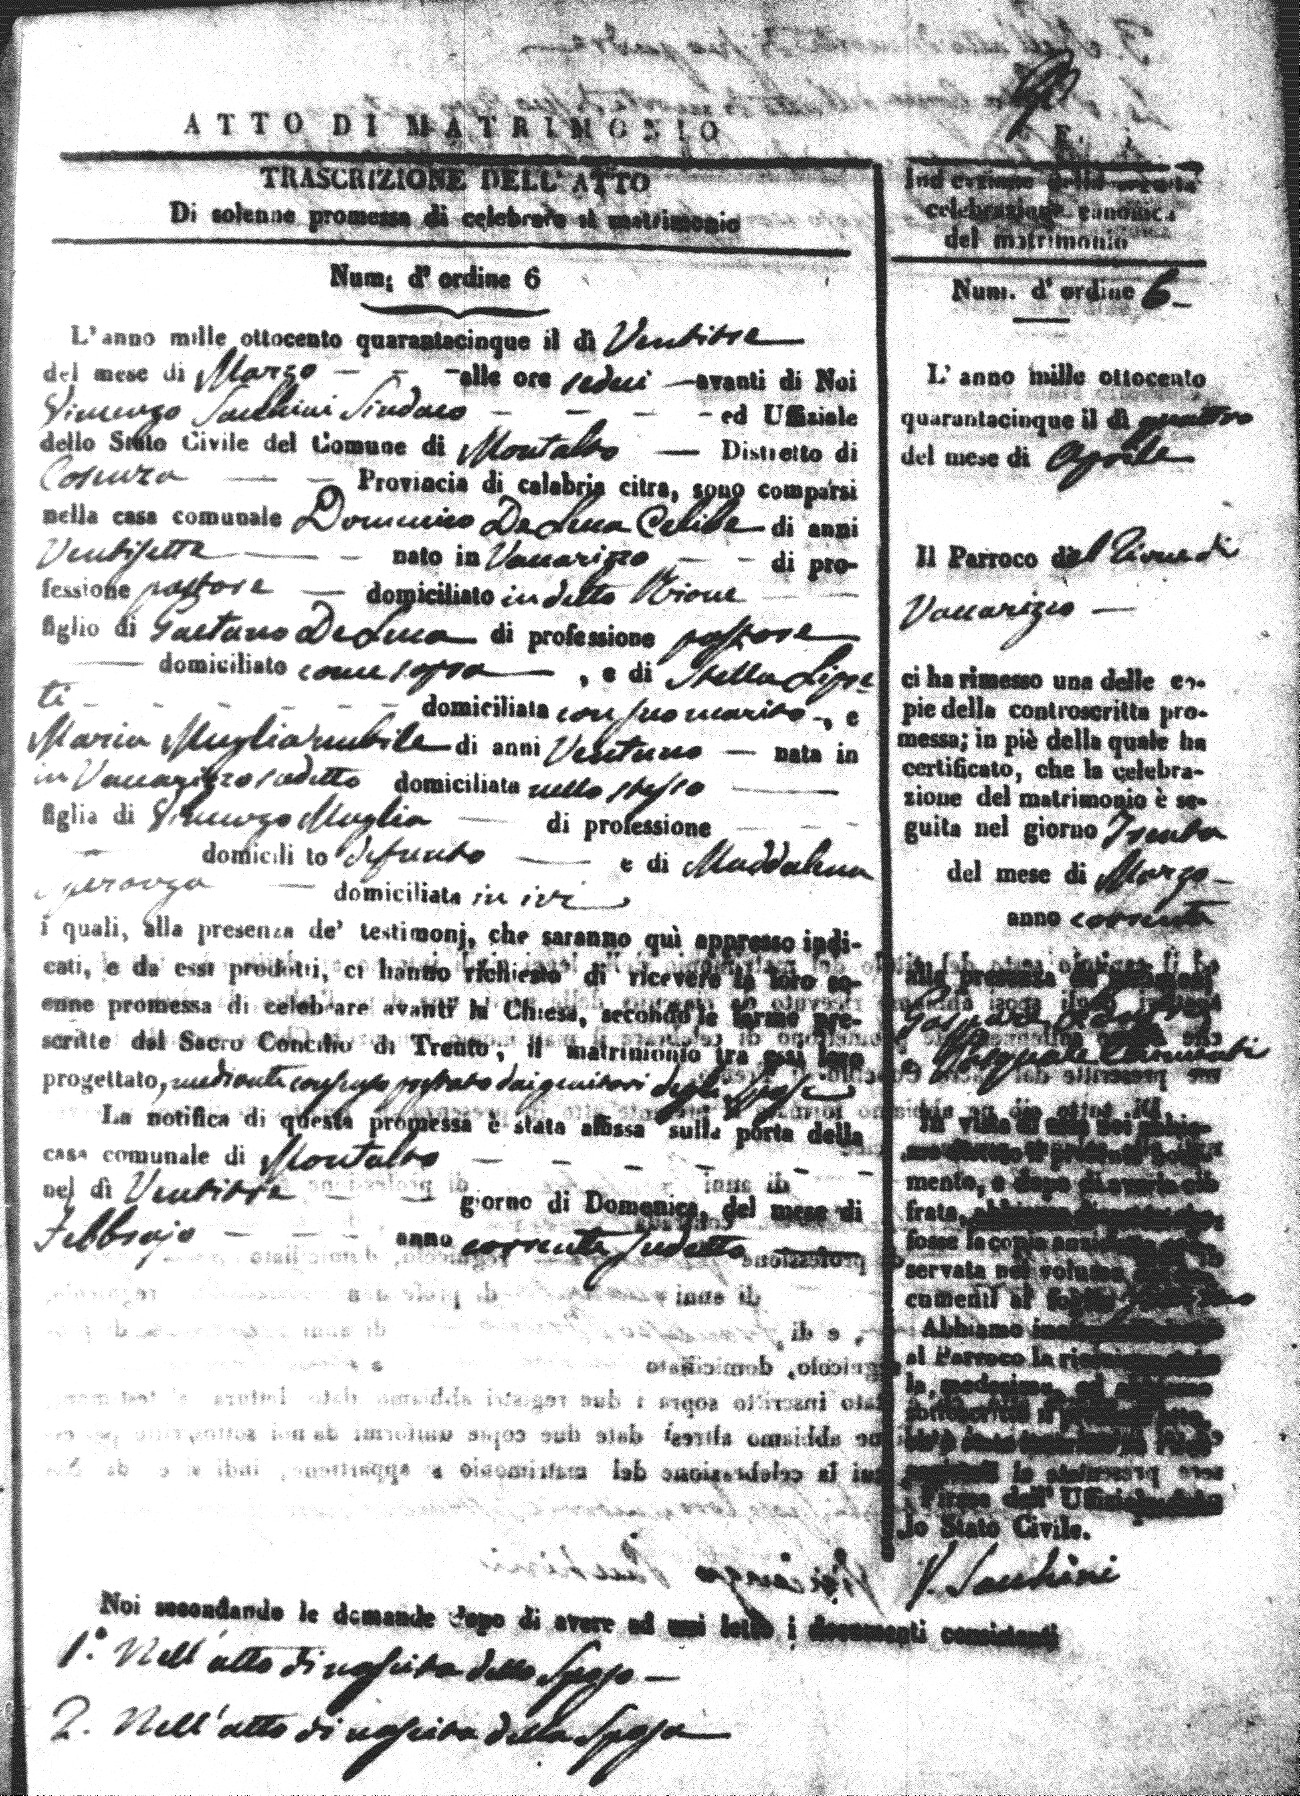 ATTO DI MATRIMONIO
TRASCRIZIONE DELL' ATTO
Di solenne promessa di celebrare il matrimonio
Num; d' ordine 6
L'anno mille ottocento quarantacinque il dì Ventitre
del mese di Marzo - - - alle ore sedeci - avanti di Noi
Vincenzo Sacchini Sindaco - - - - ed Uffiziale
dello Stato Civile del Comune di Montalto - Distretto di
Cosenza - - Provincia di calabria citra, sono comparsi
nella casa comunale Domenico De Luca Celibe di anni
Ventisette - - nato in Vaccarizzo - - di pro-
fessione pastore - domiciliato in detto Rione - -
figlio di Gaetano De Luca di professione pastore
- domiciliato come sopra - , e di Stella Lipse
ti - - - - - - domiciliata con suo marito -, e
Maria Muglia nubile di anni Ventuno - nata in
in Vaccarizzo sudetto domiciliata nello stesso -
figlia di Vincenzo Muglia - di professione - - -
- domicili to defunto - e di Maddalena
Speranza - domiciliata in ivi
i quali, alla presenza de' testimonj, che saranno quì appresso indi-
cati, e da essi prodotti, ci hanno richiesto di ricevere la loro so-
enne promessa di celebrare avanti la Chiesa, secondo le forme pre-
scritte dal Sacro Concilio di Trento, il matrimonio tra essi loro
progettato, mediante consenso prestato dai genitori degli Sposi
La notifica di questa promessa è stata affissa sulla porta della
casa comunale di Montalto - - - - - -
nel dì Ventitre - - giorno di Domenica, del mese di
Febbrajo - - - anno corrente sudetto
Noi secondando le domande dopo di avere ad essi letto i documenti consistenti
1.° Nell' atto di nascita dello Sposo -
2. Nell' atto di nascita della Sposa
Indicazione della seguita
celebrazione canonica
del matrimonio
Num. d' ordine 6
L' anno mille ottocento
quarantacinque il dì quattro
del mese di Aprile
Il Parroco del Rione di
Vaccarizzo -
ci ha rimesso una delle co-
pie della controscritta pro-
messa; in piè della quale ha
certificato, che la celebra-
zione del matrimonio è se-
guita nel giorno Trenta
del mese di Marzo -
anno corrente
alla presenza de' testimonj
e Pasquale
In vista di
mento, e dopo di averla cifrata,
servata nel volume
cumenti al foglio
Abbiamo
al Parroco la
la medesima, ed abbiamo
Firma dell' Uffiziale del-
lo Stato Civile.
V. Sacchini